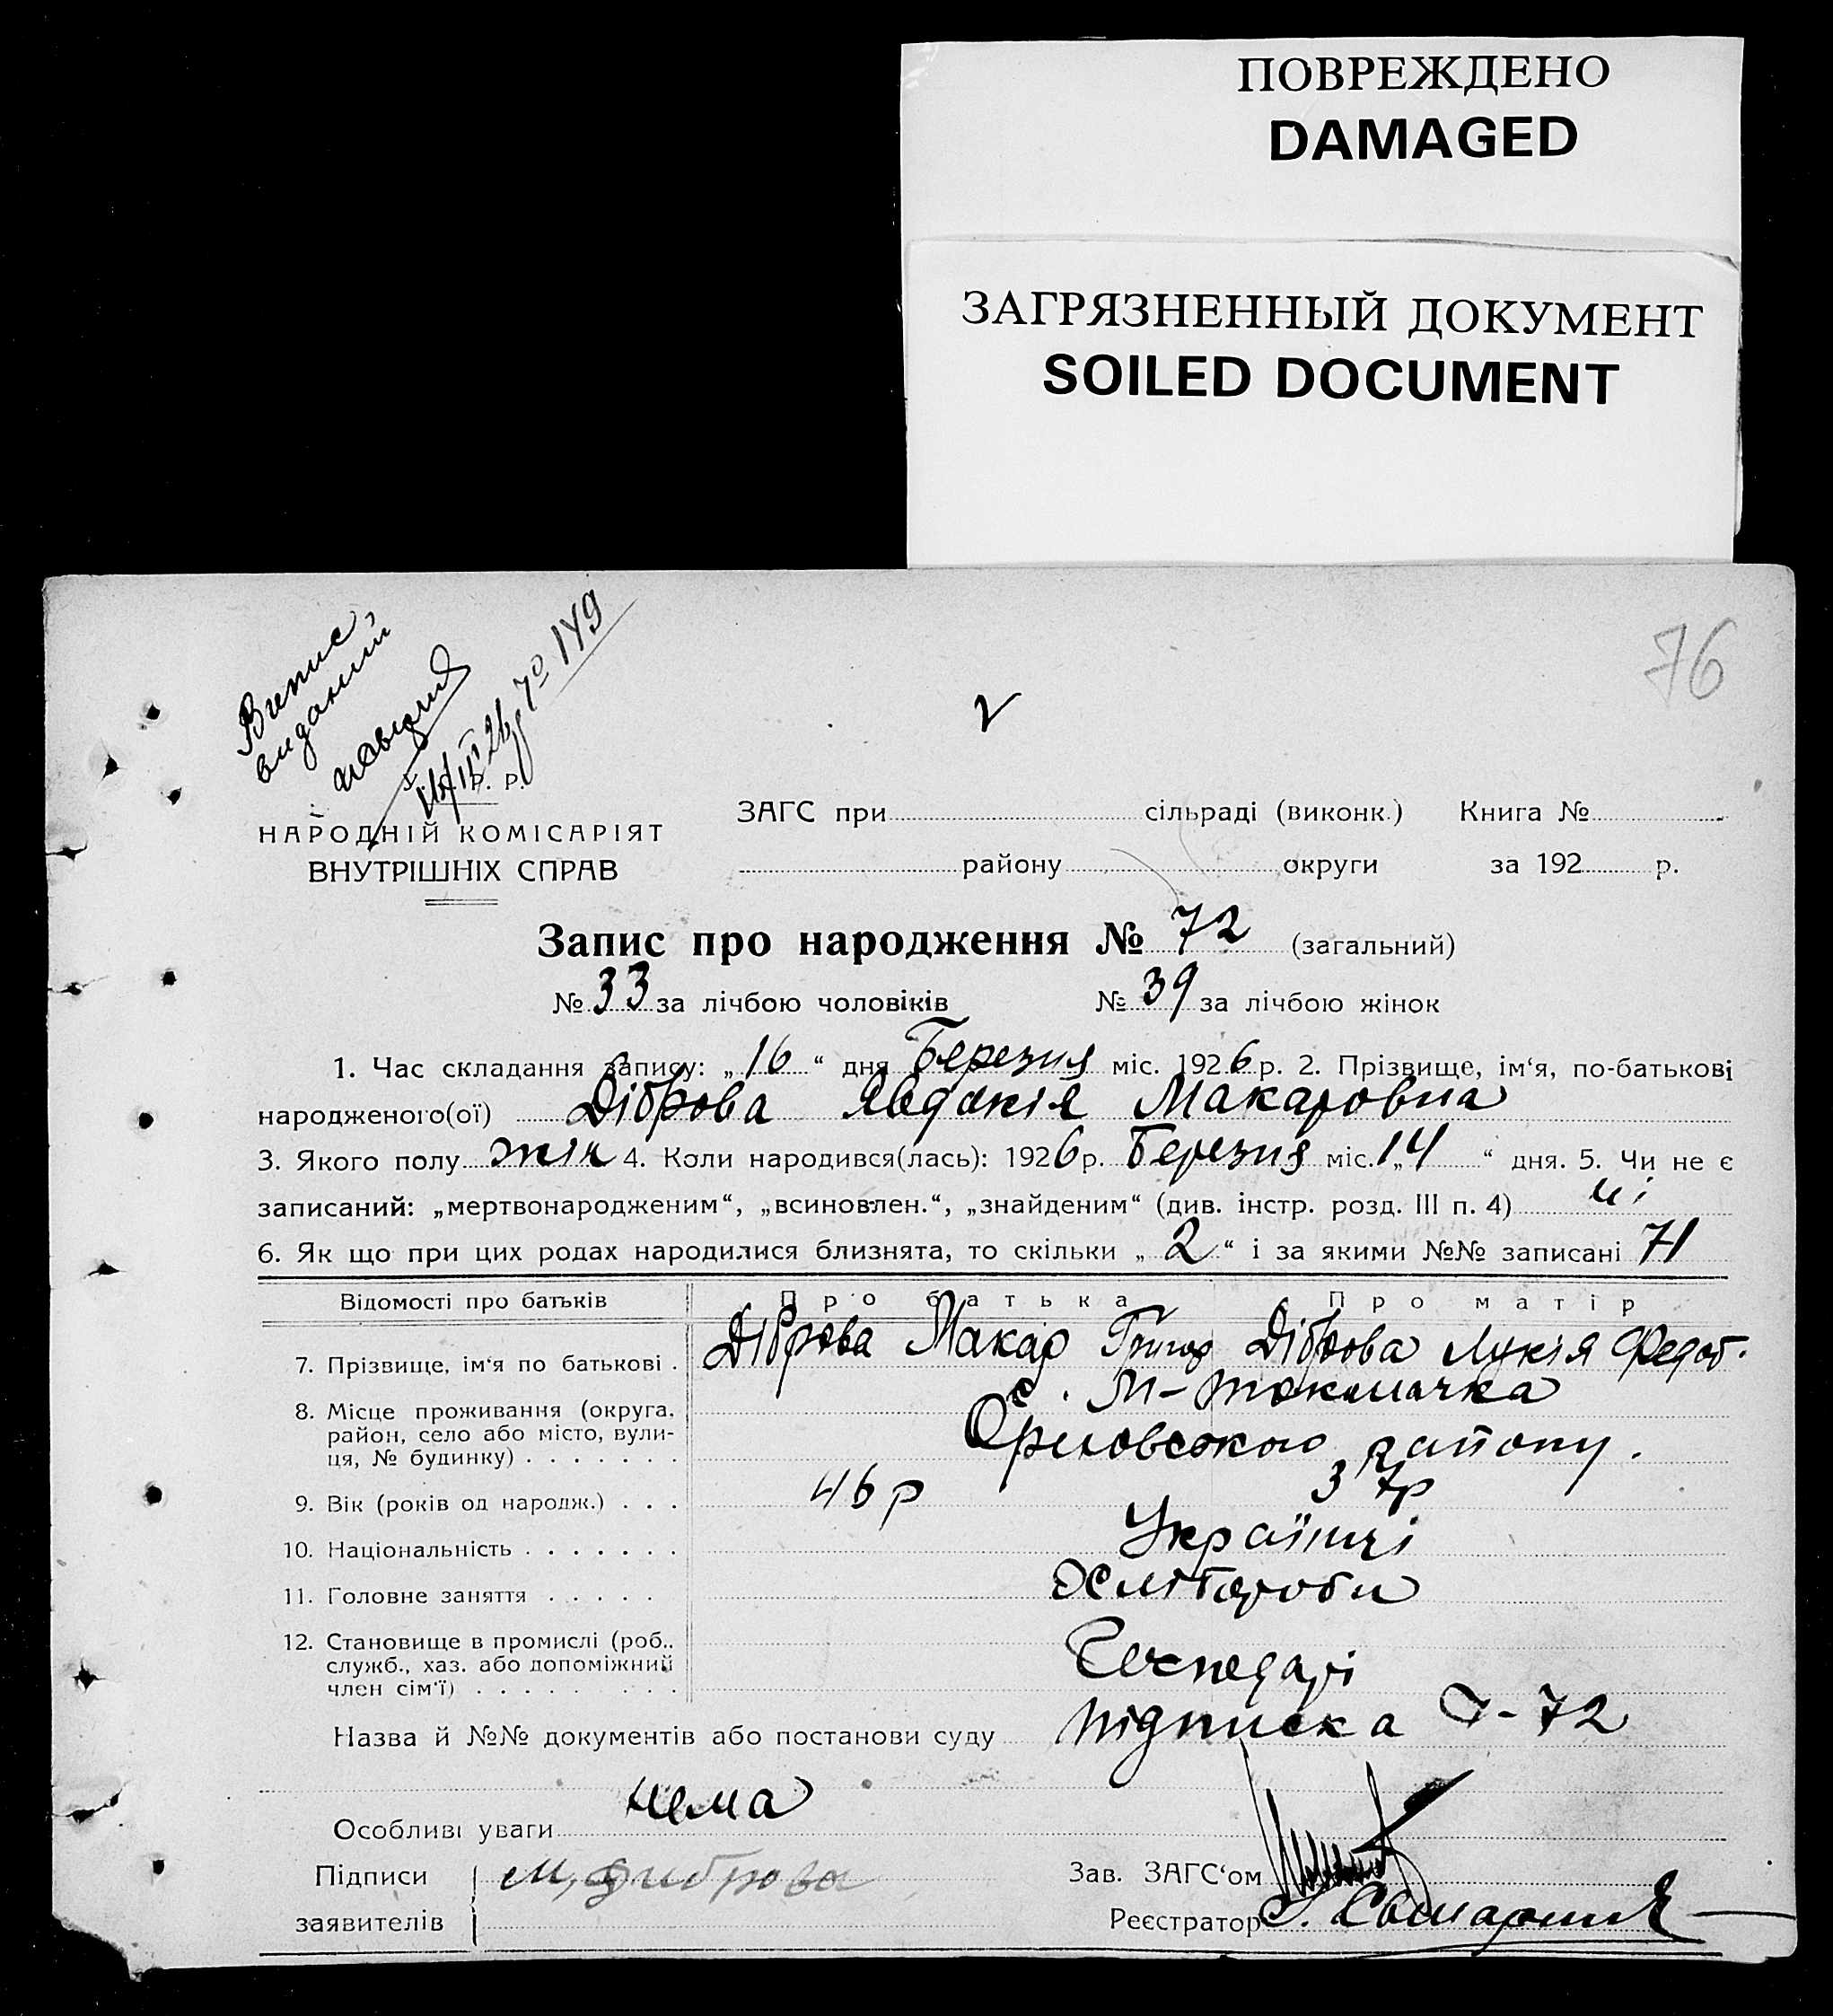 ПОВРЕЖДЕНО
DAMAGED
ЗАГРЯЗНЕННЫЙ ДОКУМЕНТ
SOILED DOCUMENT
76
2
Випис
виданий
149
НАРОДНІЙ КОМІСАРІЯТ
ВНУТРІШНІХ СПРАВ
ЗАГС при сільраді (виконк.) Книга №
району округи за 192 р.
Запис про народження № 72 (загальний)
№ 33 за лічбою чоловіків № 39 за лічбою жінок
1. Час складання запису: „16“ дня Березня міс. 1926 р. 2. Прізвище, ім‘я, по-батькові
народженого(ої) Діброва Явдокія Макаровна
3. Якого полу жін 4. Коли народився(лась): 1926 р. Березня міс. „14“ дня. 5. Чи не є
записаний: „мертвонародженим“, „всиновлен.“, „знайденим“ (див. інстр. розд. III п. 4) ні
6. Як що при цих родах народилися близнята, то скільки „2“ і за якими №№ записані 71
Відомості про батьків Про батька Про матір
7. Прізвище, ім‘я по батькові . Діброва Макар Григор Діброва Лукія Федот.
8. Місце проживання (округа, район, село або місто, вулиця, № будинку) . . . . . . . с. М-Токмачка
Оріховського району.
9. Вік (років од народж.) . . . 46 р 37р
10. Національність . . . . . . . Українці
11. Головне заняття . . . . . Хлібороби
12. Становище в промислі (роб., служб., хаз. або допоміжний член сім‘ї) . . . . . . . . Господарі
Назва й №№ документів або постанови суду підписка -72
Особливі уваги нема
Підписи М. Диброва Зав. ЗАГС‘ом
заявителів Реєстратор